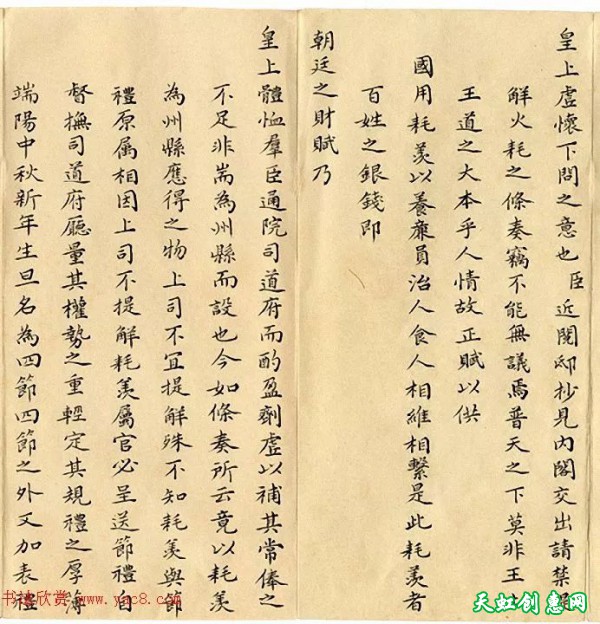 皇上虛懷下問之意也臣近閱邸抄見內閣交出請禁提
解火耗之條奏竊不能無議焉普天之下莫非王土
王道之大本乎人情故正賦以供
國用耗羨以養廉員治人食人相維相繫是此耗羨者
百姓之銀錢即
朝廷之財賦乃
皇上體恤羣臣通院司道府而酌盈劑虛以補其常俸之
不足非耑為州縣而設也今如條奏所云竟以耗羨
為州縣應得之物上司不宜提解殊不知耗羨與節
禮原属相因上司不提解耗羨屬官必呈送節禮自
督撫司道府廳量其權勢之重輕定其規禮之厚薄
端陽中秋新年生旦名為四節四節之外又加表禮
书法欣赏 www.yac8.com
天虹创意网